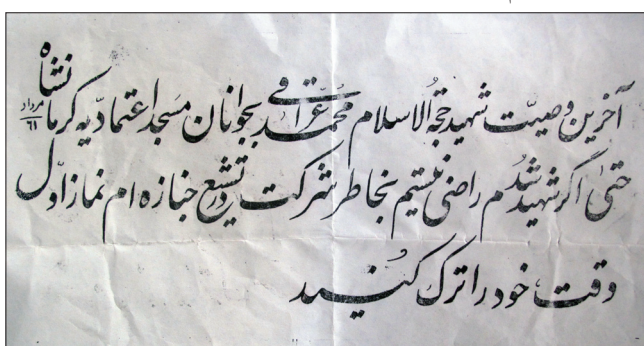 آخرین وصیّت شهید حجة الاسلام محمّد عراقی بجوانان مسجد اعتمادّیه کرمانشاه مرداد ٦١
حتیٰ اگر شهید شدُم راضی نیستم بخاطر شرکت در تشیع جنازه ام نماز اوّل
وقت خود را ترک کُنید